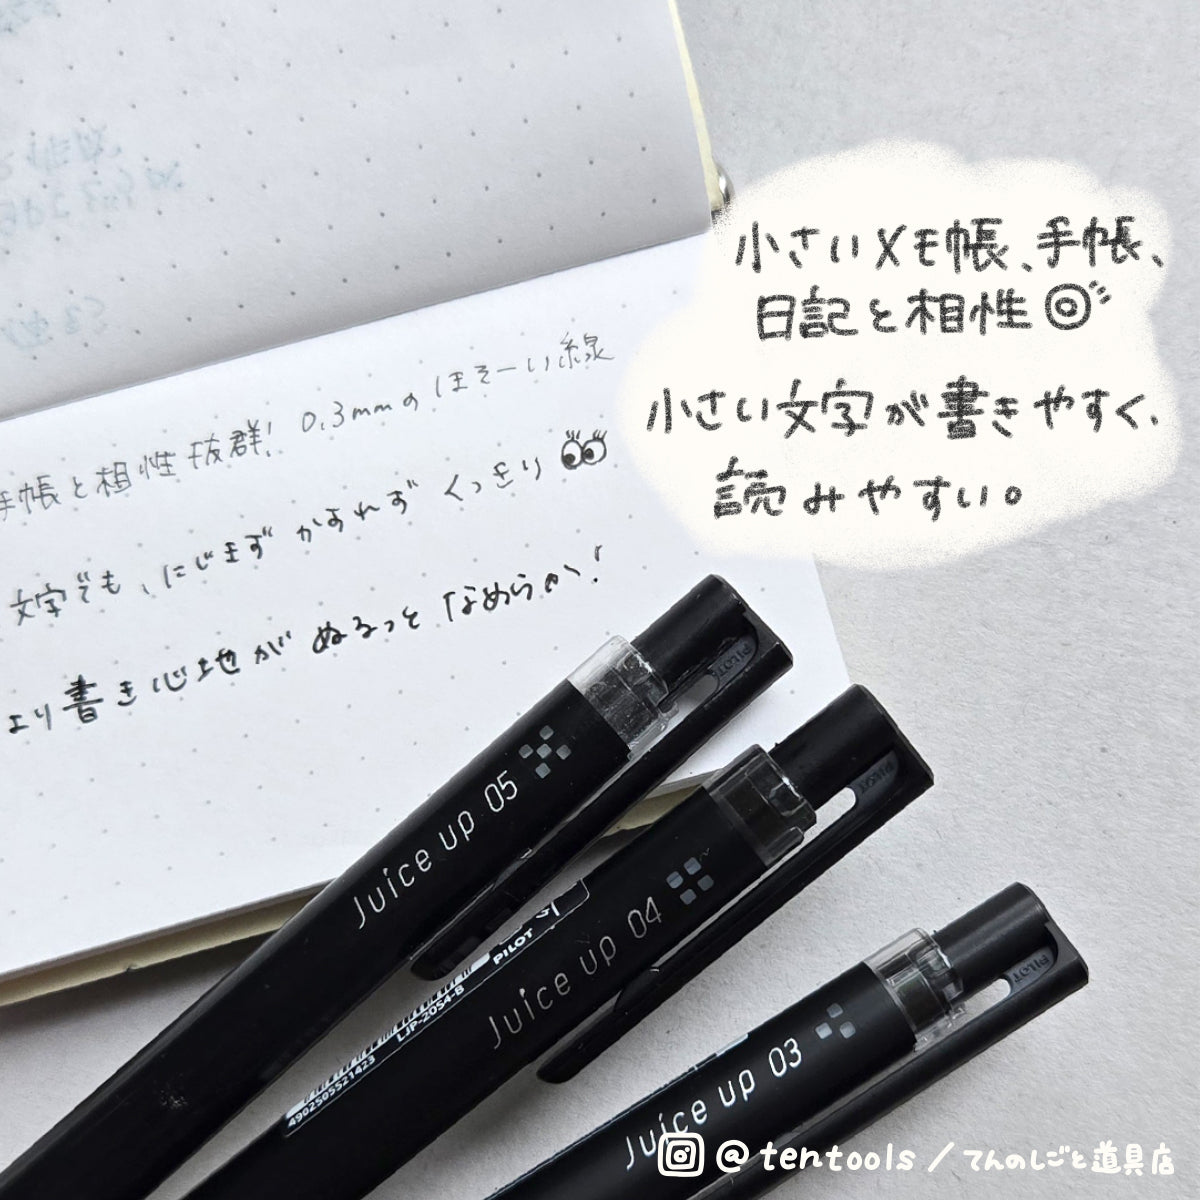 小さいメモ帳、手帳、
日記と相性◎
小さい文字が書きやすく、
読みやすい。
手帳と相性抜群! 0.3mmのほそーい線
文字でも、にじまず かすれず くっきり
より書き心地が ぬるっと なめらか!
PILOT
Juice up 05
PILOT
Juice up 04
PILOT
LJP-20S4-B
4902505521423
PILOT
Juice up 03
@tentools/てんのしごと道具店